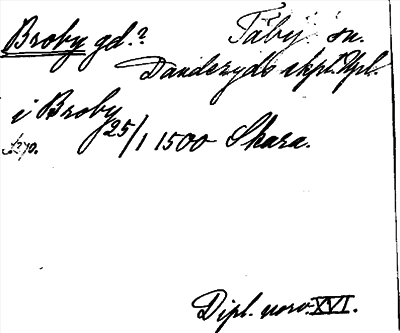 Broby gd.? Täby sn.
Danderyds skpl. Upl.
i Broby 25/1 1500 Skara.
s. 270.
Dipl. norv. XVI.